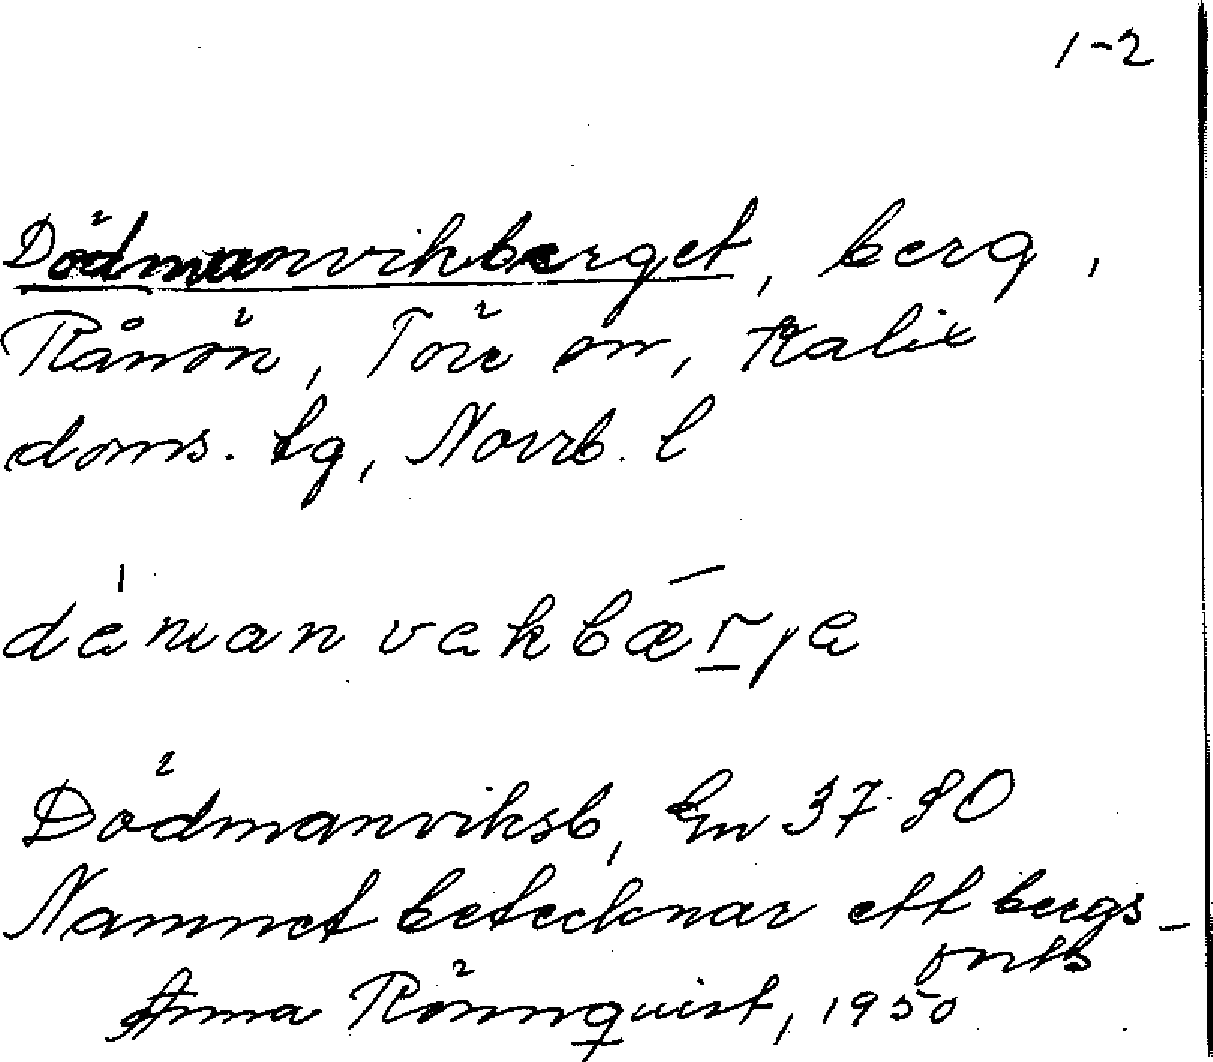 1-2
Dödmanvikberget, berg,
Rånön, Töre sn, Kalix
doms. tg, Norrb. l
démanvekbærje
Dödmanviksb, En 37.80
Namnet betecknar ett bergs-
forts
Anna Rönnquist, 1950